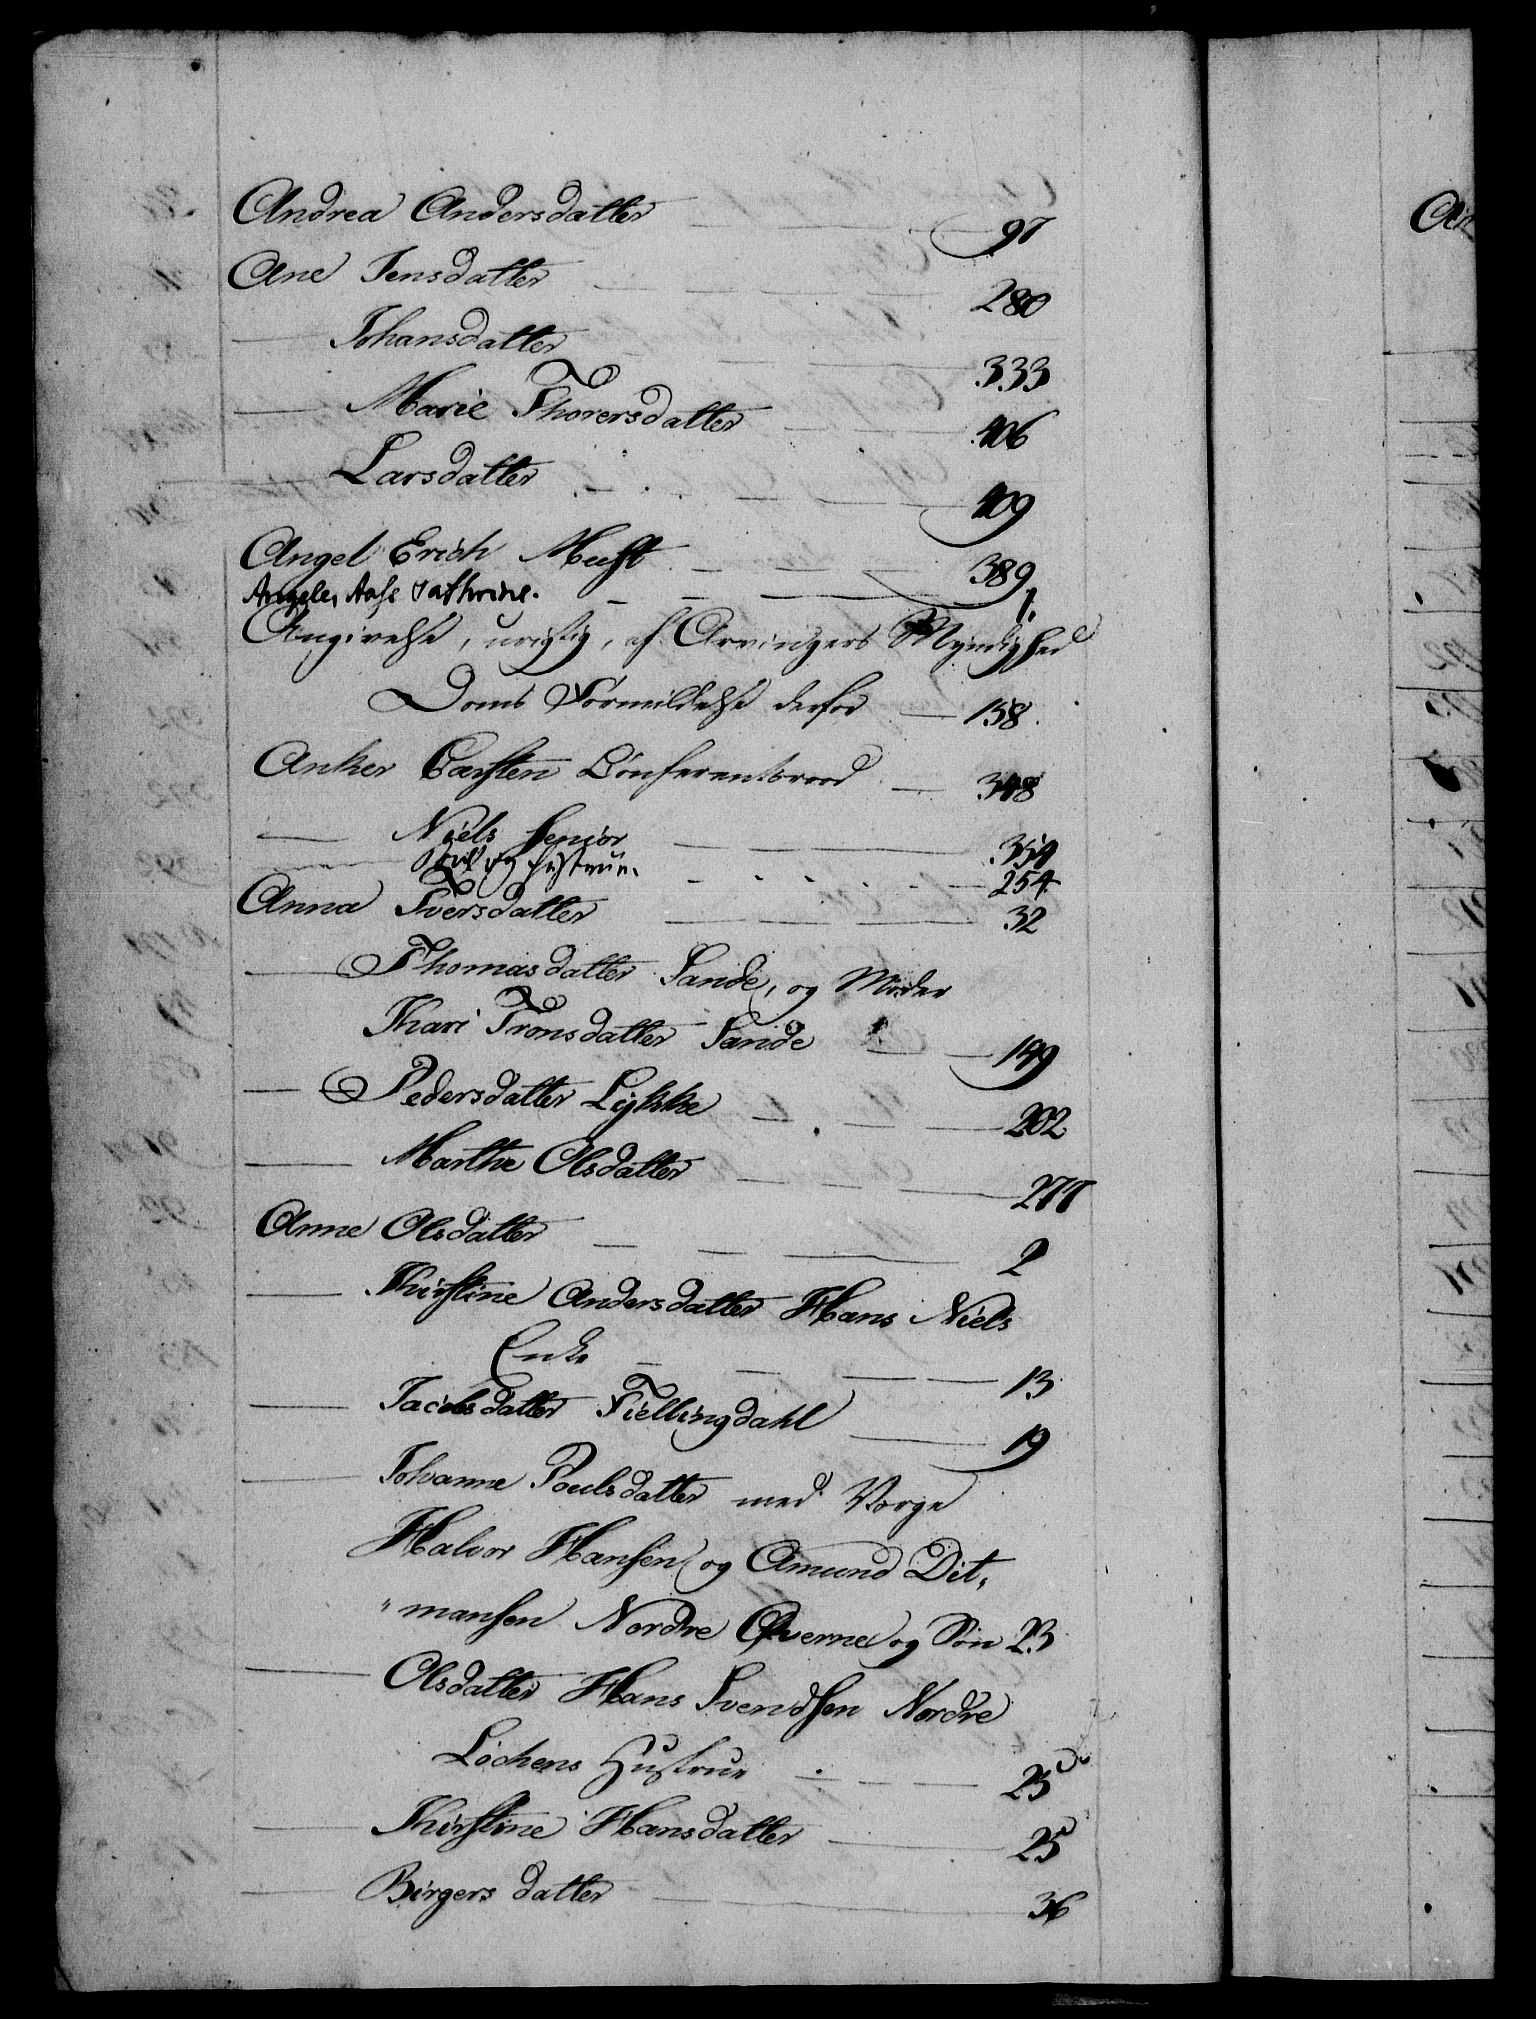 Andrea Andersdatter — — — 97
Ane Jensdatter — — — 280
— Johansdatter — — 333
— Marie Thorersdatter — — 406
— Larsdatter — — — 409
Angel Erich Must — — — 389
Angele, Aase Cathrine. — — — 1.
Angivelse, urigtig, af Arvingers Myndighed
Doms Formildelse derfor — 158.
Anker Carsten Conferentsraad — 348
— Niels Senior — — 354
— og Hustrue. — — 254
Anna Iversdatter — — 32
— Thomasdatter Sande, og Moder
Khari Tronsdatter Sande — — 149
— Pedersdatter Lykke — — — 202
— Marthe Olsdatter — — — 277
Anne Olsdatter — — — 2
— Khirstine Andersdatter Hans Niels
Enke — — — 13
— Jacobsdatter Fiellingdahl — 19
— Johanne Poulsdatter med Vorge
Halvor Hansen og Amund Dit,
"mansen Nordre Qværne og Søn 23
— Olsdatter Hans Svendsen Nordre
Løchens Hustrue — — — 25
— Khirstine Hansdatter — 25
— Birgersdatter — 36
An